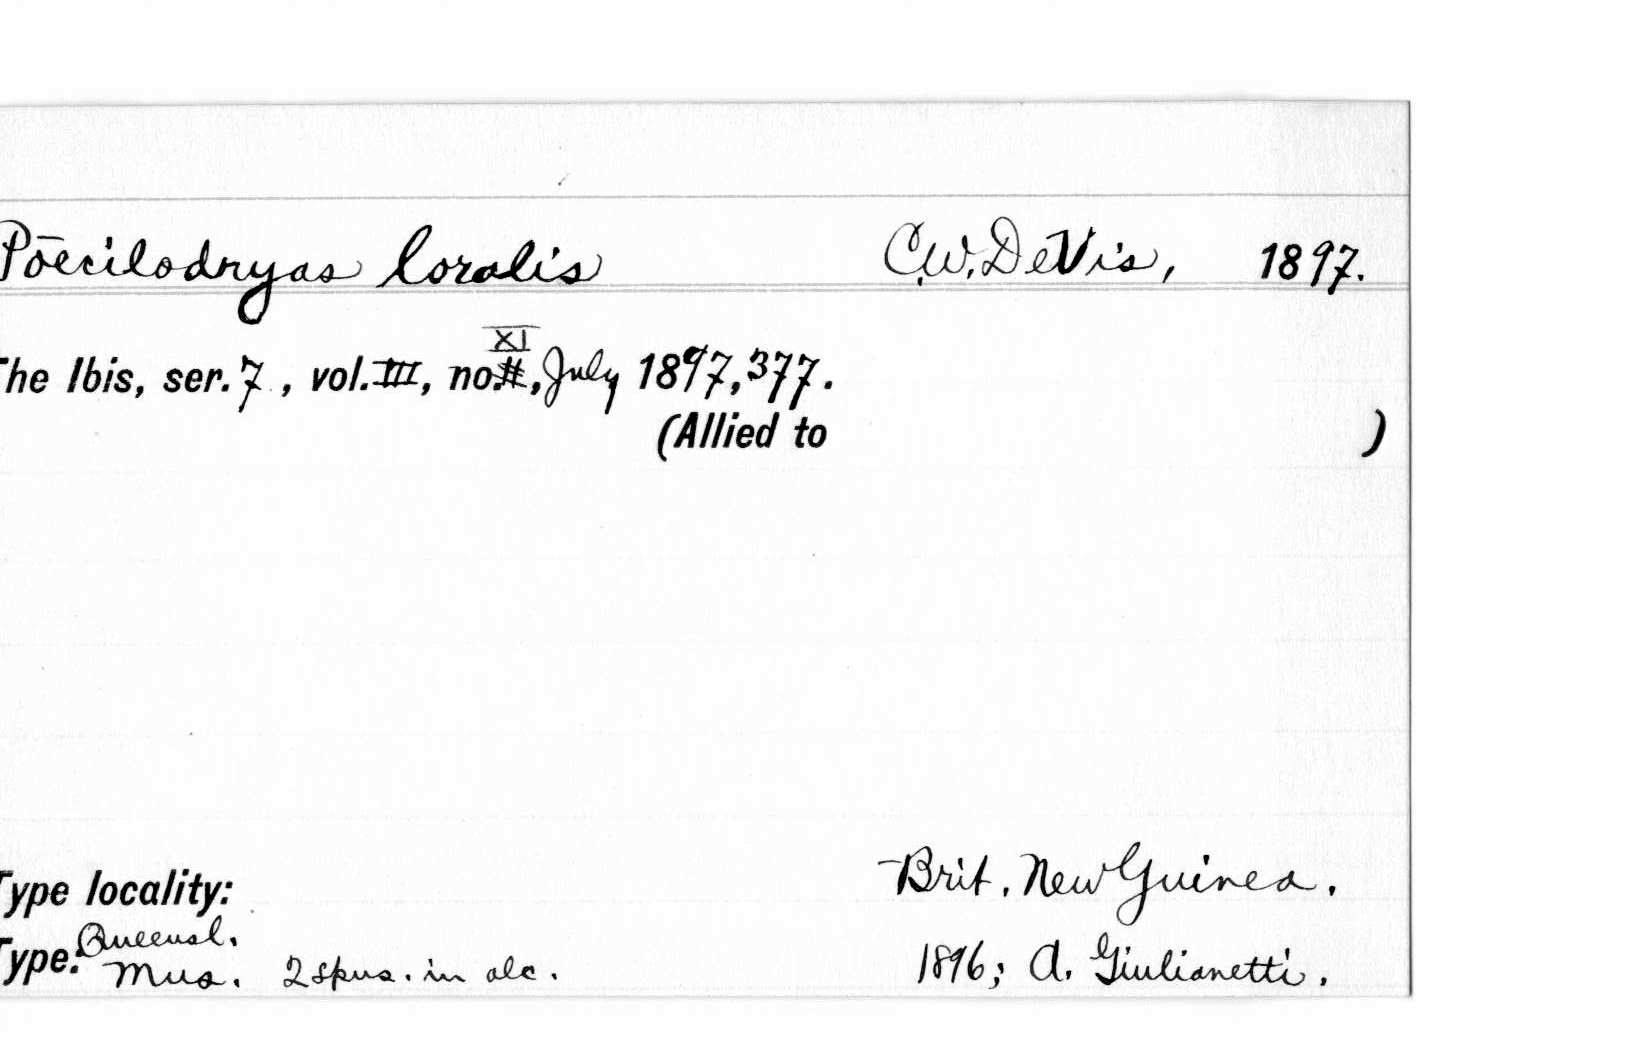 Pōecilodryas loralis C.W. DeVis, 1897.
XI
The Ibis, ser. 7, vol. III, no. #, July 1897, 377.
(Allied to )
Type locality: Brit. New Guinea.
Queensl.
Type: Mus. 2 spns. in alc. 1896; A. Giulianetti.